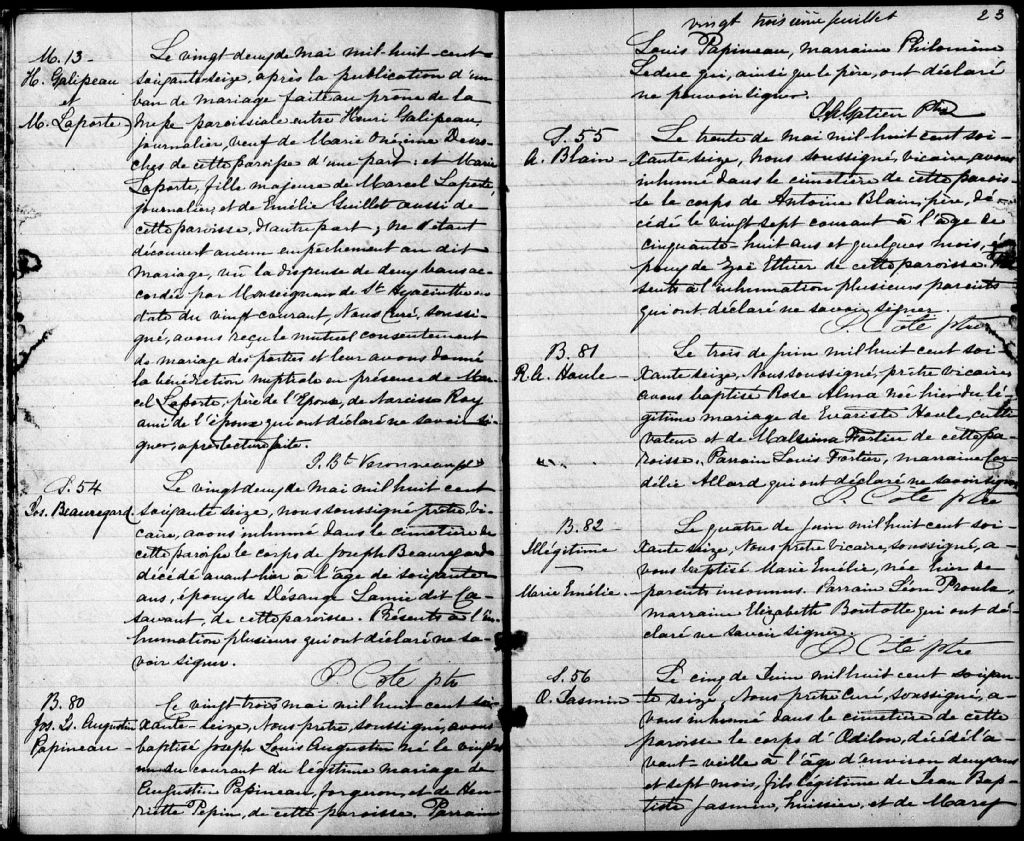 M. 13 -
H. Galipeau
et
M. Laporte
Le vingt deux de mai mil-huit-cent-
soixante-seize, après la publication d'un
ban de mariage faite au prône de la
messe paroissiale entre Henri Galipeau,
journalier, veuf de Marie Onézime Desro-
ches de cette paroisse d'une part: et Marie
Laporte, fille majeure de Marcel Laporte,
journalier, et de Emélie Guillet aussi de
cette paroisse, d'autre part; ne s'étant
découvert aucun empêchement au dit
mariage, vu la dispense de deux bans ac-
cordée par Monseigneur de St Hyacinthe en
date du vingt courant, Nous Curé, soussi-
gné, avons reçu le mutuel consentement
de mariage des parties et leur avons donné
la bénédiction nuptiale en présence de Mar-
cel Laporte, père de l'Epouse, de Narcisse Roy
ami de l'époux qui ont déclaré ne savoir si-
gner, après lecture faite.
J. Bt Veronneau ptre
S. 54
Jos. Beauregard
Le vingt deux de mai mil huit cent
soixante seize, nous soussigné prêtre vi-
caire, avons inhumé dans le cimetière de
cette paroisse le corps de Joseph Beauregard
décédé avant hier à l'âge de soixante
ans, époux de Désange Lamie dit Ca-
savant, de cette paroisse. Présents à l'in-
humation plusieurs qui ont déclaré ne sa-
voir signer.
P. Coté ptre
B. 80
Jos. L. Augustin
Papineau -
Le vingt trois mai mil huit cent soi-
xante-seize, Nous prêtre, soussigné, avons
baptisé Joseph Louis Augustin né le vingt
un du courant du légitime mariage de
Augustin Papineau, forgeron, et de Hen-
riette Pepin, de cette paroisse. Parrain
vingt troisième feuillet
23
Louis Papineau, marraine Philomène
Leduc qui, ainsi que le père, ont déclaré
ne pouvoir signer.
Gatien Ptre
S. 55
A. Blain -
Le trente de mai mil huit cent soi-
xante seize, Nous soussigné, vicaire, avons
inhumé dans le cimetière de cette parois-
se le corps de Antoine Blain, père, dé-
cédé le vingt sept courant à l'âge de
cinquante-huit ans et quelques mois, é-
poux de Zoé Ethier de cette paroisse. Pré-
sents à l'inhumation plusieurs parents
qui ont déclaré ne savoir signer.
P. Coté ptre
B. 81
R. A. Houle -
Le trois de juin mil huit cent soi-
xante seize, Nous soussigné, prêtre vicaire
avons baptisé Rose Alma née hier du lé-
gitime mariage de Evariste Houle, culti-
vateur et de Malsrina Fortier de cette pa-
roisse. Parrain Louis Fortier, marraine Cor-
délie Allard qui ont déclaré ne savoir signer
P. Coté ptre
B. 82 -
Illégitime
Marie Emélie. -
Le quatre de juin mil huit cent soi-
xante seize, Nous prêtre vicaire, soussigné, a-
vons baptisé Marie Emélie, née hier de
parents inconnus. Parrain Léon Proulx,
marraine Elizabeth Boutotte qui ont dé-
claré ne savoir signer.
P. Coté ptre
S. 56
O. Jasmin -
Le cinq de Juin mil huit cent soixan-
te seize, Nous prêtre curé, soussigné, a-
vons inhumé dans le cimetière de cette
paroisse le corps d'Odilon, décédé l'a-
vant-veille à l'âge d'environ deux ans
et sept mois, fils légitime de Jean Bap-
tiste Jasmin, huissier, et de Mary